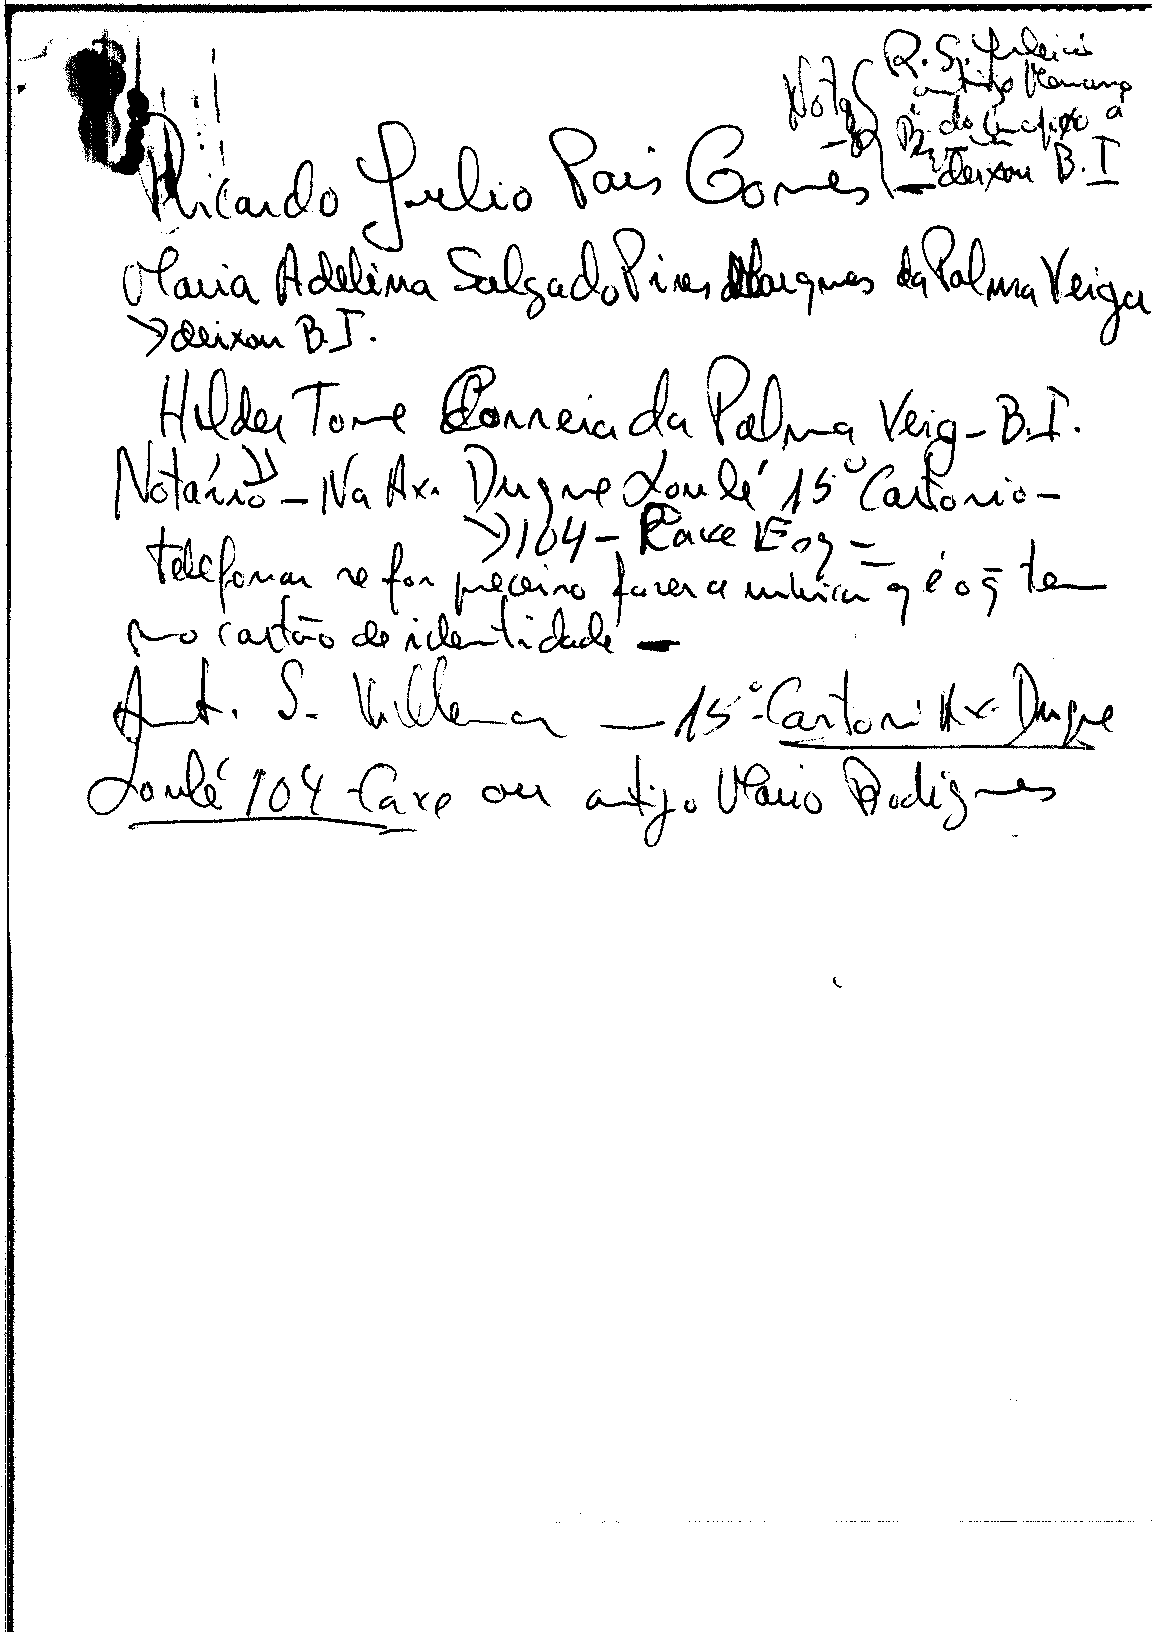 Notas R. S. Julião
antigo
do
deixou B. I
Ricardo Julio Pais Gomes
Maria Adelina Salgado Pires Marques da Palma Veiga
deixou B. I.
Hilder Tome Correia da Palma Veig - B. I.
Notário - Na Av. Duque Loulé 15º Cartorio -
104 - Cave Esq -
telefonar se for preciso fazer a q é o q tem
no cartão de identidade -
Ant. S. - 15º Cartori Av. Duque
Loulé 104 Cave ou antigo Mario Rodigues